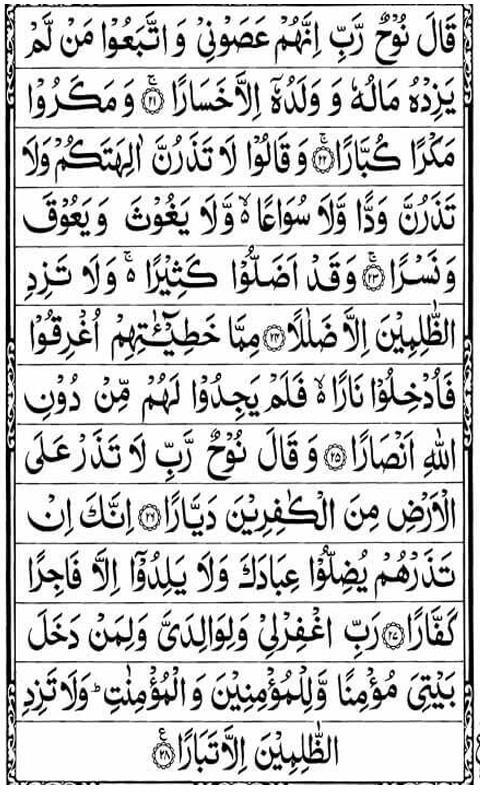 قَالَ نُوْحٌ رَّبِّ اِنَّهُمْ عَصَوْنِیْ وَ اتَّبَعُوْا مَنْ لَّمْ
یَزِدْهُ مَالُهٗ وَ وَلَدُهٗۤ اِلَّا خَسَارًا ۚ‏﴿۲۱﴾ وَ مَكَرُوْا
مَكْرًا كُبَّارًا ۚ‏﴿۲۲﴾ وَ قَالُوْا لَا تَذَرُنَّ اٰلِهَتَكُمْ وَلَا
تَذَرُنَّ وَدًّا وَّلَا سُوَاعًا ۙ۬ وَّلَا یَغُوْثَ وَ یَعُوْقَ
وَ نَسْرًا ۚ‏﴿۲۳﴾ وَ قَدْ اَضَلُّوْا كَثِیْرًا ۬ۚ وَلَا تَزِدِ
الظّٰلِمِیْنَ اِلَّا ضَلٰلًا ﴿۲۴﴾ مِمَّا خَطِیْٓـٰٔتِهِمْ اُغْرِقُوْا
فَاُدْخِلُوْا نَارًا ۙ۬ فَلَمْ یَجِدُوْا لَهُمْ مِّنْ دُوْنِ
اللّٰهِ اَنْصَارًا ﴿۲۵﴾ وَ قَالَ نُوْحٌ رَّبِّ لَا تَذَرْ عَلَی
الْاَرْضِ مِنَ الْكٰفِرِیْنَ دَیَّارًا ﴿۲۶﴾ اِنَّكَ اِنْ
تَذَرْهُمْ یُضِلُّوْا عِبَادَكَ وَلَا یَلِدُوْۤا اِلَّا فَاجِرًا
كَفَّارًا ﴿۲۷﴾ رَبِّ اغْفِرْلِیْ وَلِوَالِدَیَّ وَلِمَنْ دَخَلَ
بَیْتِیَ مُؤْمِنًا وَّلِلْمُؤْمِنِیْنَ وَ الْمُؤْمِنٰتِ ؕ وَلَا تَزِدِ
الظّٰلِمِیْنَ اِلَّا تَبَارًا ﴿۲۸﴾ ع